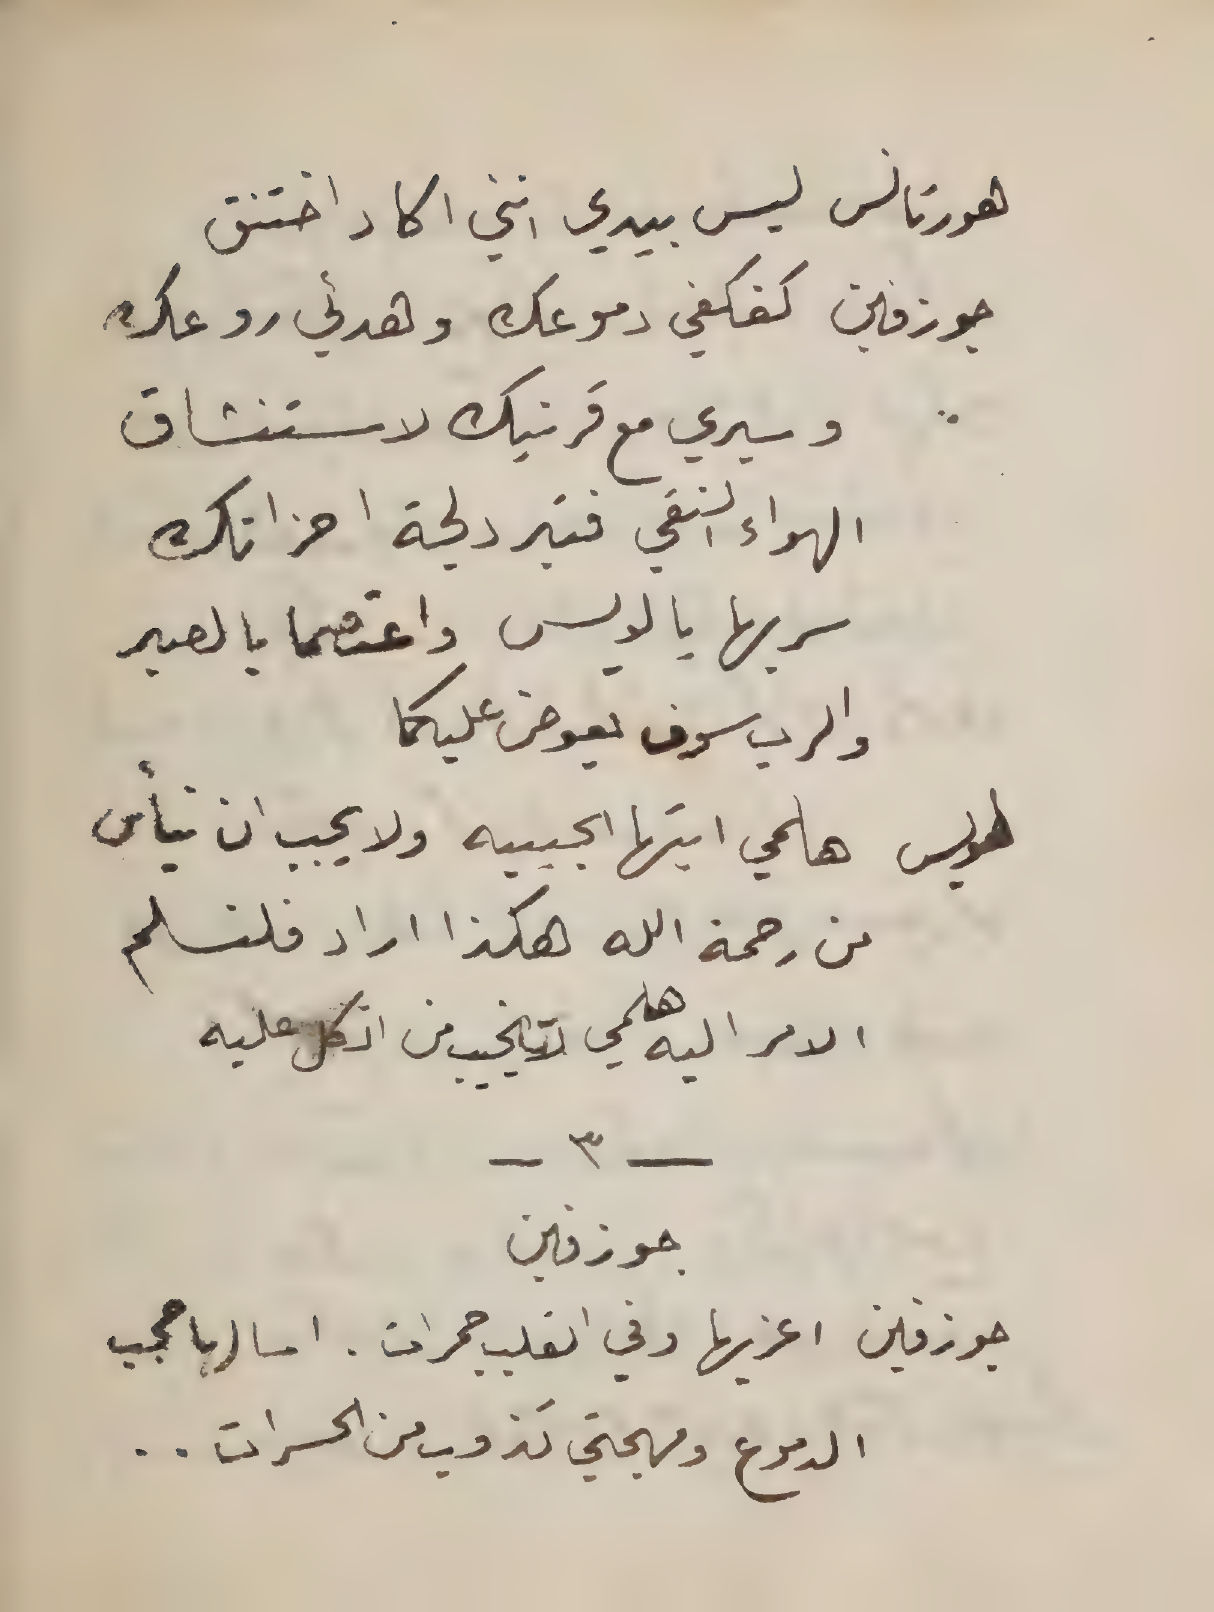 هورتانس ليس بيدي انني اكاد اختنق
جوزفين كفكفي دموعك وهدئي روعك
وسيري مع قرنيك لاستنشاق
الهواء النقي فتبرد لجة احزانك
سر بها يا لويس واعتصما بالصبر
والرب سوف يعوض عليكما
لويس هلمي ايتها الحبيبه ولا يجب ان نيأس
من رحمة الله هكذا اراد فلنسلم
الامر اليه هلمي لا يخيب من اتكل عليه
— ٣ —
جوزفين
جوزفين اعزيها وفي القلب جمرات . اسالها حجب
الدموع ومهجتي تذوب من الحسرات ..